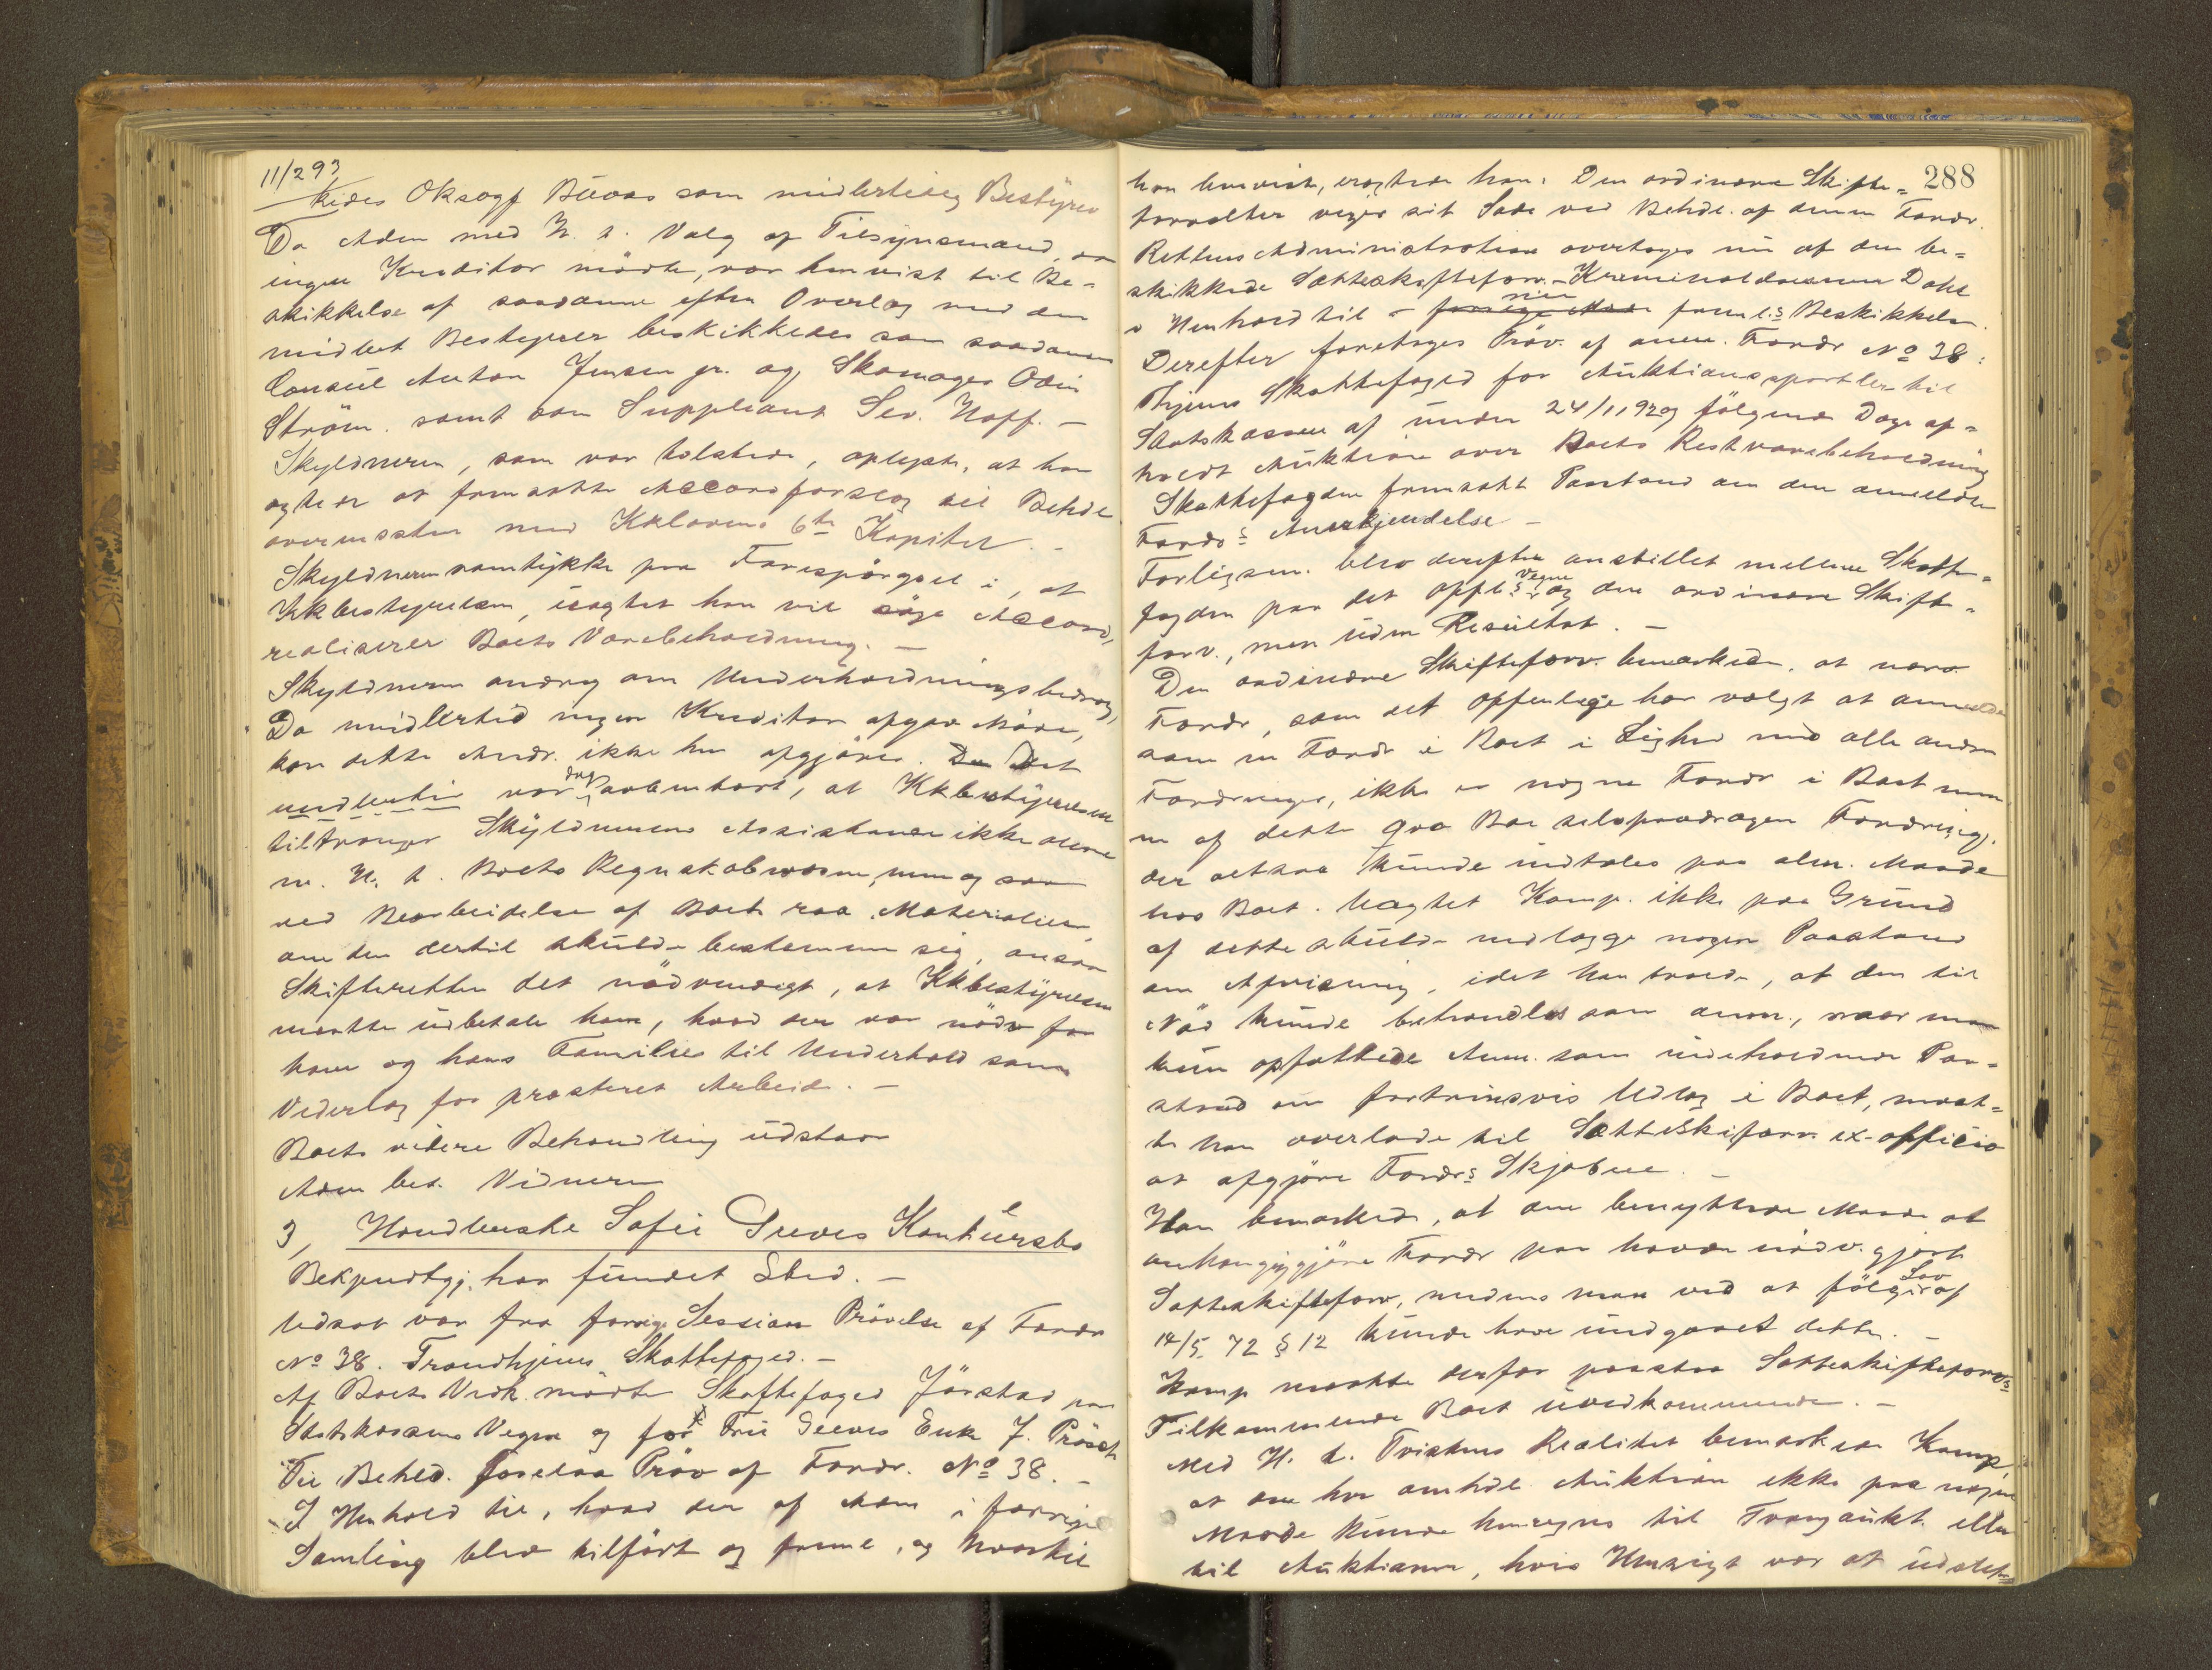 11/293
kedes Oksagf Buaas som midlertidig Bestyrer
Da Adm med H. t. Valg af Tilsynsmænd, da
ingen Kreditor mødte, var henvist til Be-
skikkelse af saadanne efter Overlæg med den
midlert Bestyrer beskikkedes som saadanne
Consul Anton Jensen jr. og Skomager Odin
Strøm. samt som Suppleant Sev. Hoff. —
Skyldneren, som var tilstede, oplyste, at han
agter at fremsætte Accordforslag til Behdl
overensstem med Kklovens 6te Kapitel. -
Skyldneren samtykke paa Forespørgsel i, at
Kkbestyrelsen, uagtet han vil søge Accord,
realiserer Boets Varebeholdning. —
Skyldneren androg om Underholdningsbidrag,
Da midlertid ingen Kreditor afgav Møde,
kan dette Andr. ikke her afgjøres. Da Det
imidlertid var dog aabenbart, at Kkbestyrelsen
tiltrænger Skyldnerens Assistance ikke alene
m. H. t. Boets Regnskabsvæsen, men og saa
ved Bearbeidelse af Boets raa Materialier
om den dertil skulde bestemme sig, ansaa
Skifteretten det nødvendigt, at Kkbestyrelsen
maatte udbetale ham, hvad der var nødv for
ham og hans Families til Underhold som
Vederlag for præsteret Arbeide. —
Boets videre Behandling udstaar
Adm bes. Vidnern
3, Handlerske Sofie Greves Konkursbo
Bekjendtgj. har fundet Sted. —
Udsat var fra forrige Session Prøvelse af Fordr
No 38. Trondhjems Skattefoged. —
Af Boets Vedk. mødte Skattefoged Jørstad paa
Statskassens Vegne og for Fru Greves Enke J. Prøsch
Til Behld. forelaa Prøv af Fordr. No 38. —
I Henhold til, hvad der af Adm i forrige
Samling blev tilført og freml., og hvortil
288
han henviste, eragtede han. Den ordinære Skifte-
forvalter viger sit Sæde ved Behdl. af denne Fordr.
Rettens Administration overtoges nu af den be-
skikkede Sætteskifteforv. - Kriminaldommer Dahl
i Henhold til - forrige Møde nu freml:s Beskikkelse.
Derefter foretoges Prøv. af anm. Fordr No 38:
Thjems Skattefoged for Auktionssportler til
Statskassen af under 24/11 92 og følgende Dage af-
holdt Auktion over Boets Restvarebeholdning
Skattefogden fremsatte Paastand om den anmeldte
Fordr:s Anerkjendelse —
Forligsm. blev derefter anstillet mellem Skatte-
fogden paa det offl:s Vegne og den ordinære Skifte-
forv., men uden Resultat. —
Den ordinære Skifteforv. bemærkede. at nærv
Fordr, som det offentlige har valgt at anmelde
som en Fordr i Boet i Lighed med alle andre
Fordringer, ikke er nogen Fordr i Boet men
en af dette qva Bo selvpaadragen Fordring,
der altsaa kunde indtales paa alm. Maade
hos Boet. Uagtet Komp. ikke paa Grund
af dette skulde nedlægge nogen Paastand
om Afvisning, idet han troede, at den til
Nød kunde behandles som anm., naar man
kun opfattede Anm. som indeholdende Paa-
stand om fortrinsvis Udlæg i Boet, maat-
te han overlade til Sætteskiforv. ex-officio
at afgjøre Fordr:s Skjæbne. —
Han bemærkede, at den benyttede Maade at
anhængiggjøre Fordr paa havde nødv. gjort
Sætteskifteforv, medens man ved at følge Lov af
14/5. 72 § 12 kunde have undgaaet dette. —
Komp maatte derfor paastaa Sætteskifteforv:s
Tilkommende Boet uvedkommende. —
Med H. t. Tvistens Realitet bemærkede Komp,
at den her omhdl. Auktion ikke paa nogen
Maade kunde henregnes til Tvangaukt. eller
til Auktioner, hvis Hensigt var at udslet-